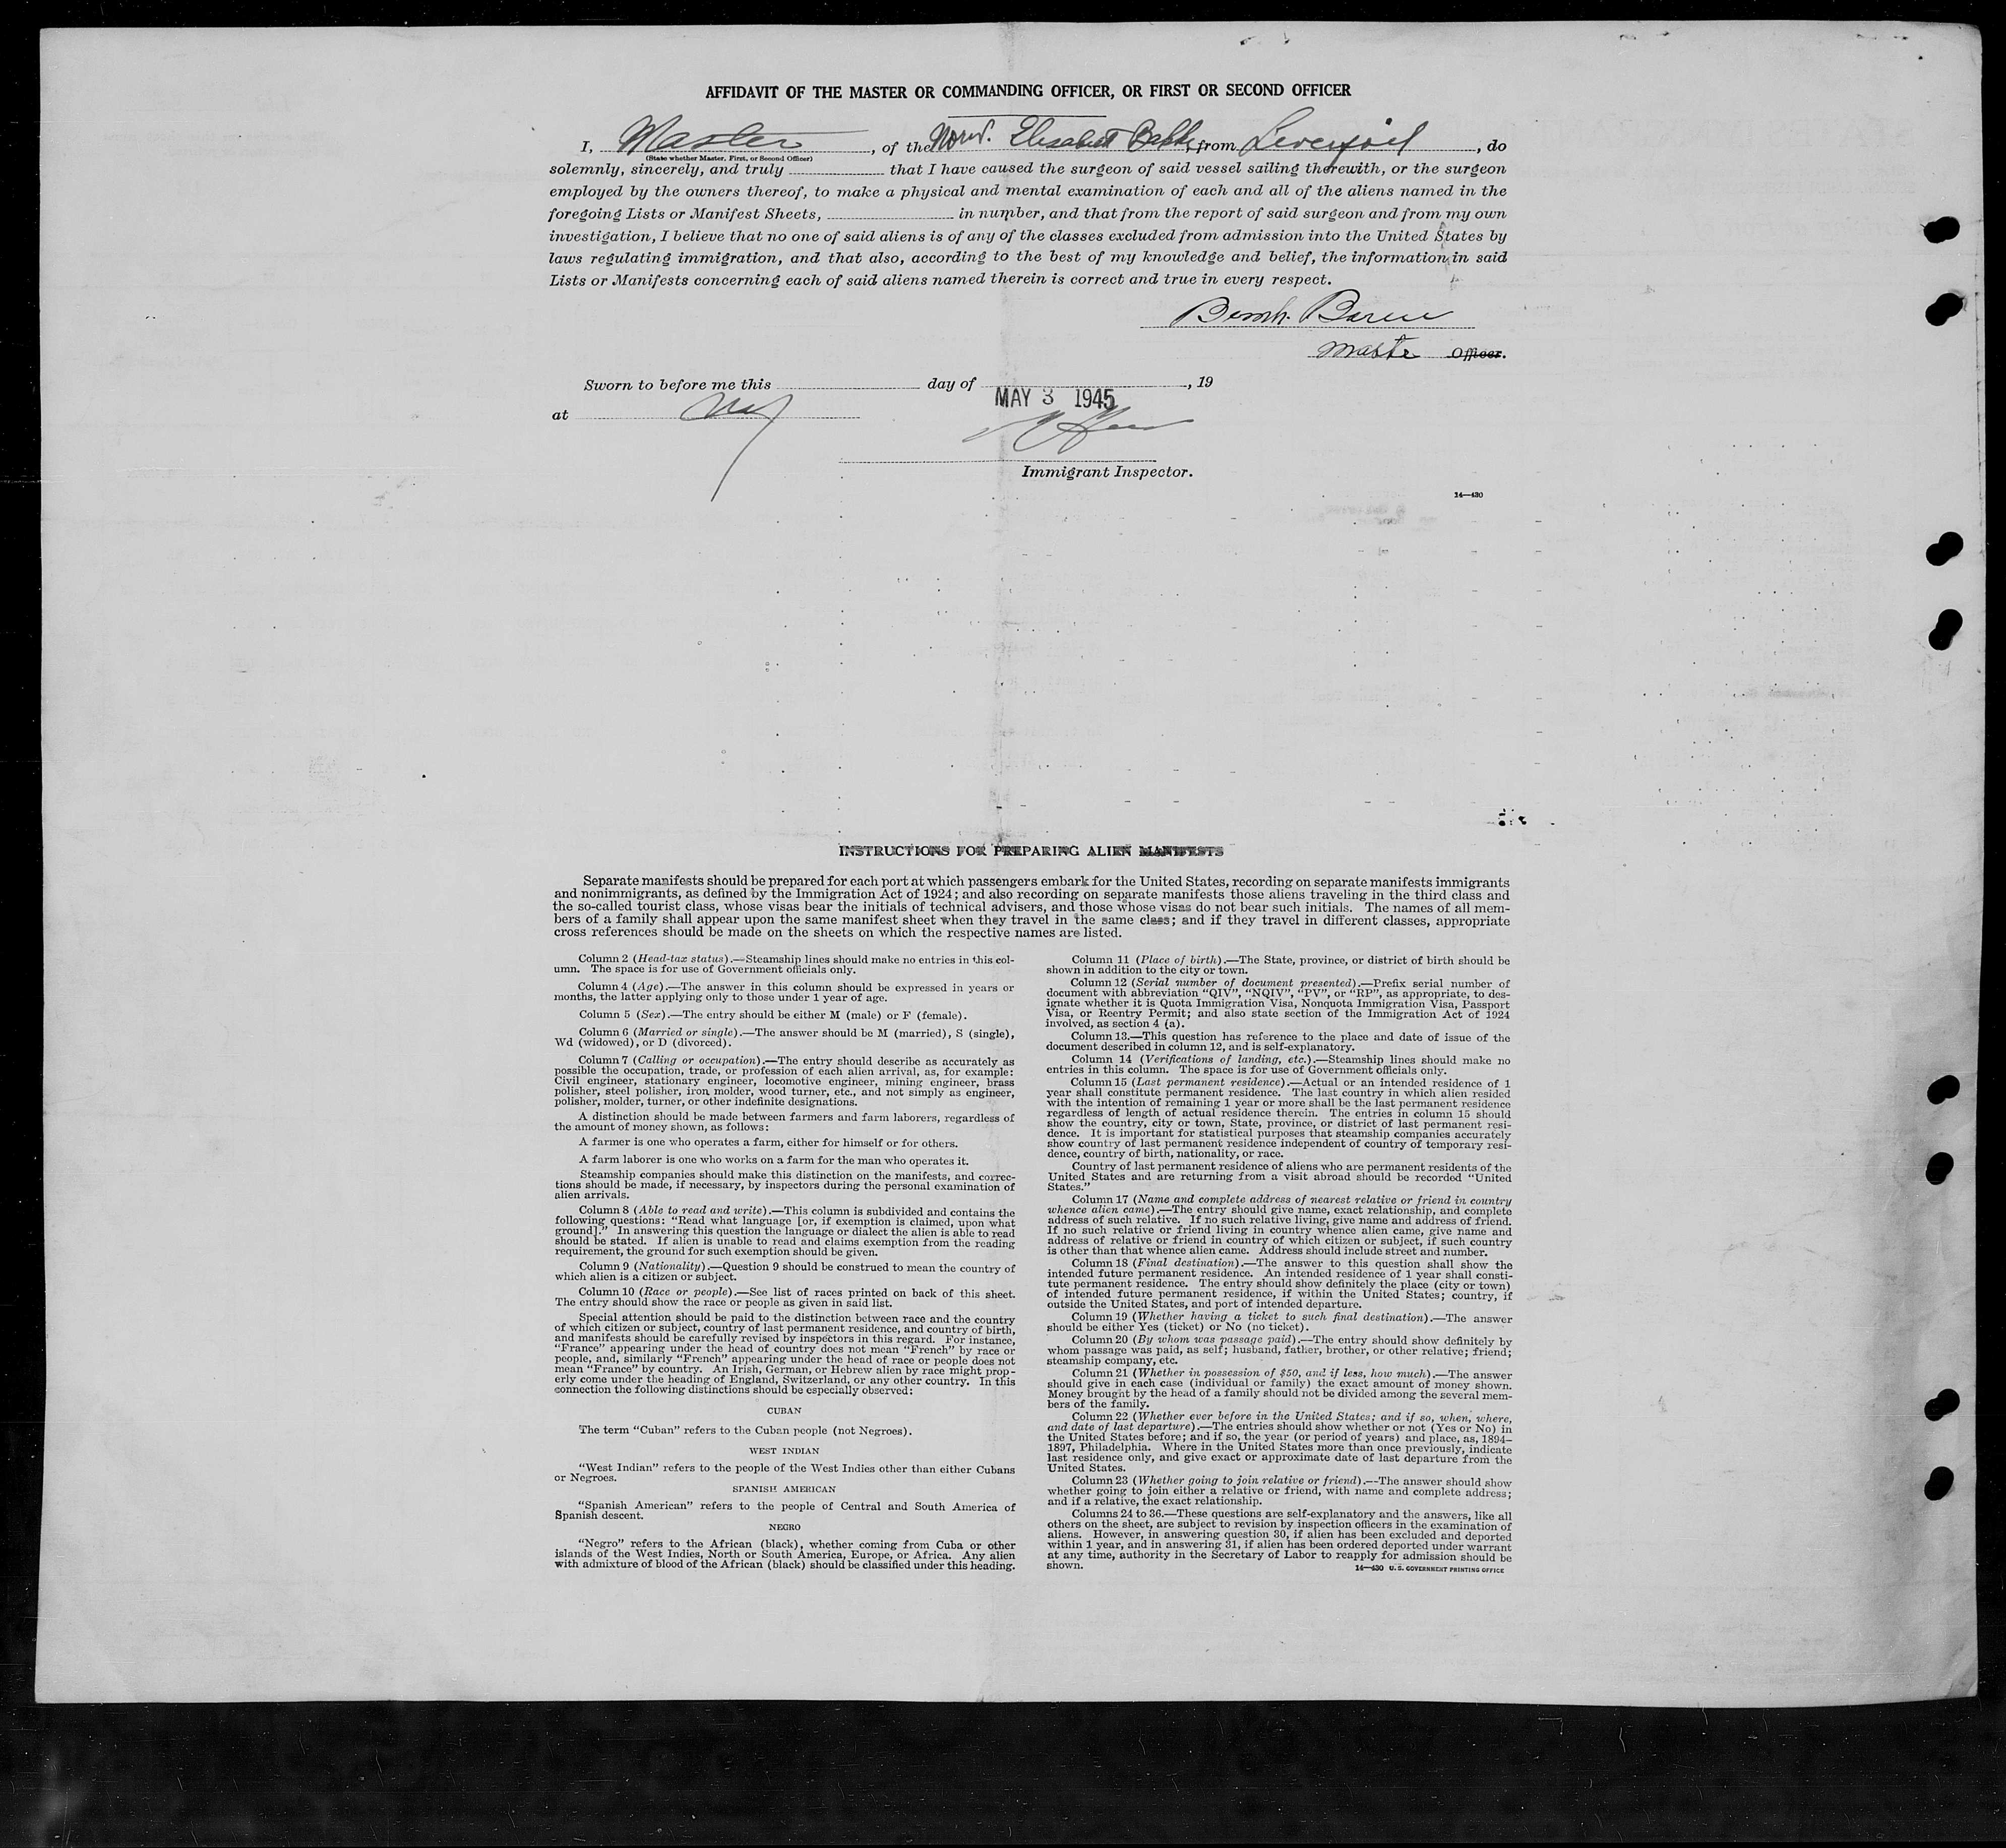 AFFIDAVIT OF THE MASTER OR COMMANDING OFFICER, OR FIRST OR SECOND OFFICER
I, Master, of the Norw. Elisabeth Bakke, from Liverpool, do
(State whether Master, First, or Second Officer)
solemnly, sincerely, and truly that I have caused the surgeon of said vessel sailing therewith, or the surgeon
employed by the owners thereof, to make a physical and mental examination of each and all of the aliens named in the
foregoing Lists or Manifest Sheets, in number, and that from the report of said surgeon and from my own
investigation, I believe that no one of said aliens is of any of the classes excluded from admission into the United States by
laws regulating immigration, and that also, according to the best of my knowledge and belief, the information in said
Lists or Manifests concerning each of said aliens named therein is correct and true in every respect.
Master Officer.
Sworn to before me this day of , 19
MAY 3 1945
at
Immigrant Inspector.
14—430
INSTRUCTIONS FOR PREPARING ALIEN MANIFESTS
Separate manifests should be prepared for each port at which passengers embark for the United States, recording on separate manifests immigrants
and nonimmigrants, as defined by the Immigration Act of 1924; and also recording on separate manifests those aliens traveling in the third class and
the so-called tourist class, whose visas bear the initials of technical advisers, and those whose visas do not bear such initials. The names of all mem-
bers of a family shall appear upon the same manifest sheet when they travel in the same class; and if they travel in different classes, appropriate
cross references should be made on the sheets on which the respective names are listed.
Column 2 (Head-tax status).—Steamship lines should make no entries in this col-
umn. The space is for use of Government officials only.
Column 4 (Age).—The answer in this column should be expressed in years or
months, the latter applying only to those under 1 year of age.
Column 5 (Sex).—The entry should be either M (male) or F (female).
Column 6 (Married or single).—The answer should be M (married), S (single),
Wd (widowed), or D (divorced).
Column 7 (Calling or occupation).—The entry should describe as accurately as
possible the occupation, trade, or profession of each alien arrival, as, for example:
Civil engineer, stationary engineer, locomotive engineer, mining engineer, brass
polisher, steel polisher, iron molder, wood turner, etc., and not simply as engineer,
polisher, molder, turner, or other indefinite designations.
A distinction should be made between farmers and farm laborers, regardless of
the amount of money shown, as follows:
A farmer is one who operates a farm, either for himself or for others.
A farm laborer is one who works on a farm for the man who operates it.
Steamship companies should make this distinction on the manifests, and correc-
tions should be made, if necessary, by inspectors during the personal examination of
alien arrivals.
Column 8 (Able to read and write).—This column is subdivided and contains the
following questions: “Read what language [or, if exemption is claimed, upon what
ground].” In answering this question the language or dialect the alien is able to read
should be stated. If alien is unable to read and claims exemption from the reading
requirement, the ground for such exemption should be given.
Column 9 (Nationality).—Question 9 should be construed to mean the country of
which alien is a citizen or subject.
Column 10 (Race or people).—See list of races printed on back of this sheet.
The entry should show the race or people as given in said list.
Special attention should be paid to the distinction between race and the country
of which citizen or subject, country of last permanent residence, and country of birth,
and manifests should be carefully revised by inspectors in this regard. For instance,
“France” appearing under the head of country does not mean “French” by race or
people, and, similarly “French” appearing under the head of race or people does not
mean “France” by country. An Irish, German, or Hebrew alien by race might prop-
erly come under the heading of England, Switzerland, or any other country. In this
connection the following distinctions should be especially observed:
CUBAN
The term “Cuban” refers to the Cuban people (not Negroes).
WEST INDIAN
“West Indian” refers to the people of the West Indies other than either Cubans
or Negroes.
SPANISH AMERICAN
“Spanish American” refers to the people of Central and South America of
Spanish descent.
NEGRO
“Negro” refers to the African (black), whether coming from Cuba or other
islands of the West Indies, North or South America, Europe, or Africa. Any alien
with admixture of blood of the African (black) should be classified under this heading.
Column 11 (Place of birth).—The State, province, or district of birth should be
shown in addition to the city or town.
Column 12 (Serial number of document presented).—Prefix serial number of
document with abbreviation “QIV”, “NQIV”, “PV”, or “RP”, as appropriate, to des-
ignate whether it is Quota Immigration Visa, Nonquota Immigration Visa, Passport
Visa, or Reentry Permit; and also state section of the Immigration Act of 1924
involved, as section 4 (a).
Column 13.—This question has reference to the place and date of issue of the
document described in column 12, and is self-explanatory.
Column 14 (Verifications of landing, etc.).—Steamship lines should make no
entries in this column. The space is for use of Government officials only.
Column 15 (Last permanent residence).—Actual or an intended residence of 1
year shall constitute permanent residence. The last country in which alien resided
with the intention of remaining 1 year or more shall be the last permanent residence
regardless of length of actual residence therein. The entries in column 15 should
show the country, city or town, State, province, or district of last permanent resi-
dence. It is important for statistical purposes that steamship companies accurately
show country of last permanent residence independent of country of temporary resi-
dence, country of birth, nationality, or race.
Country of last permanent residence of aliens who are permanent residents of the
United States and are returning from a visit abroad should be recorded “United
States.”
Column 17 (Name and complete address of nearest relative or friend in country
whence alien came).—The entry should give name, exact relationship, and complete
address of such relative. If no such relative living, give name and address of friend.
If no such relative or friend living in country whence alien came, give name and
address of relative or friend in country of which citizen or subject, if such country
is other than that whence alien came. Address should include street and number.
Column 18 (Final destination).—The answer to this question shall show the
intended future permanent residence. An intended residence of 1 year shall consti-
tute permanent residence. The entry should show definitely the place (city or town)
of intended future permanent residence, if within the United States; country, if
outside the United States, and port of intended departure.
Column 19 (Whether having a ticket to such final destination).—The answer
should be either Yes (ticket) or No (no ticket).
Column 20 (By whom was passage paid).—The entry should show definitely by
whom passage was paid, as self; husband, father, brother, or other relative; friend;
steamship company, etc.
Column 21 (Whether in possession of $50, and if less, how much).—The answer
should give in each case (individual or family) the exact amount of money shown.
Money brought by the head of a family should not be divided among the several mem-
bers of the family.
Column 22 (Whether ever before in the United States; and if so, when, where,
and date of last departure).—The entries should show whether or not (Yes or No) in
the United States before; and if so, the year (or period of years) and place, as, 1894–
1897, Philadelphia. Where in the United States more than once previously, indicate
last residence only, and give exact or approximate date of last departure from the
United States.
Column 23 (Whether going to join relative or friend).—The answer should show
whether going to join either a relative or friend, with name and complete address;
and if a relative, the exact relationship.
Columns 24 to 36.—These questions are self-explanatory and the answers, like all
others on the sheet, are subject to revision by inspection officers in the examination of
aliens. However, in answering question 30, if alien has been excluded and deported
within 1 year, and in answering 31, if alien has been ordered deported under warrant
at any time, authority in the Secretary of Labor to reapply for admission should be
shown.
14—430 U. S. GOVERNMENT PRINTING OFFICE